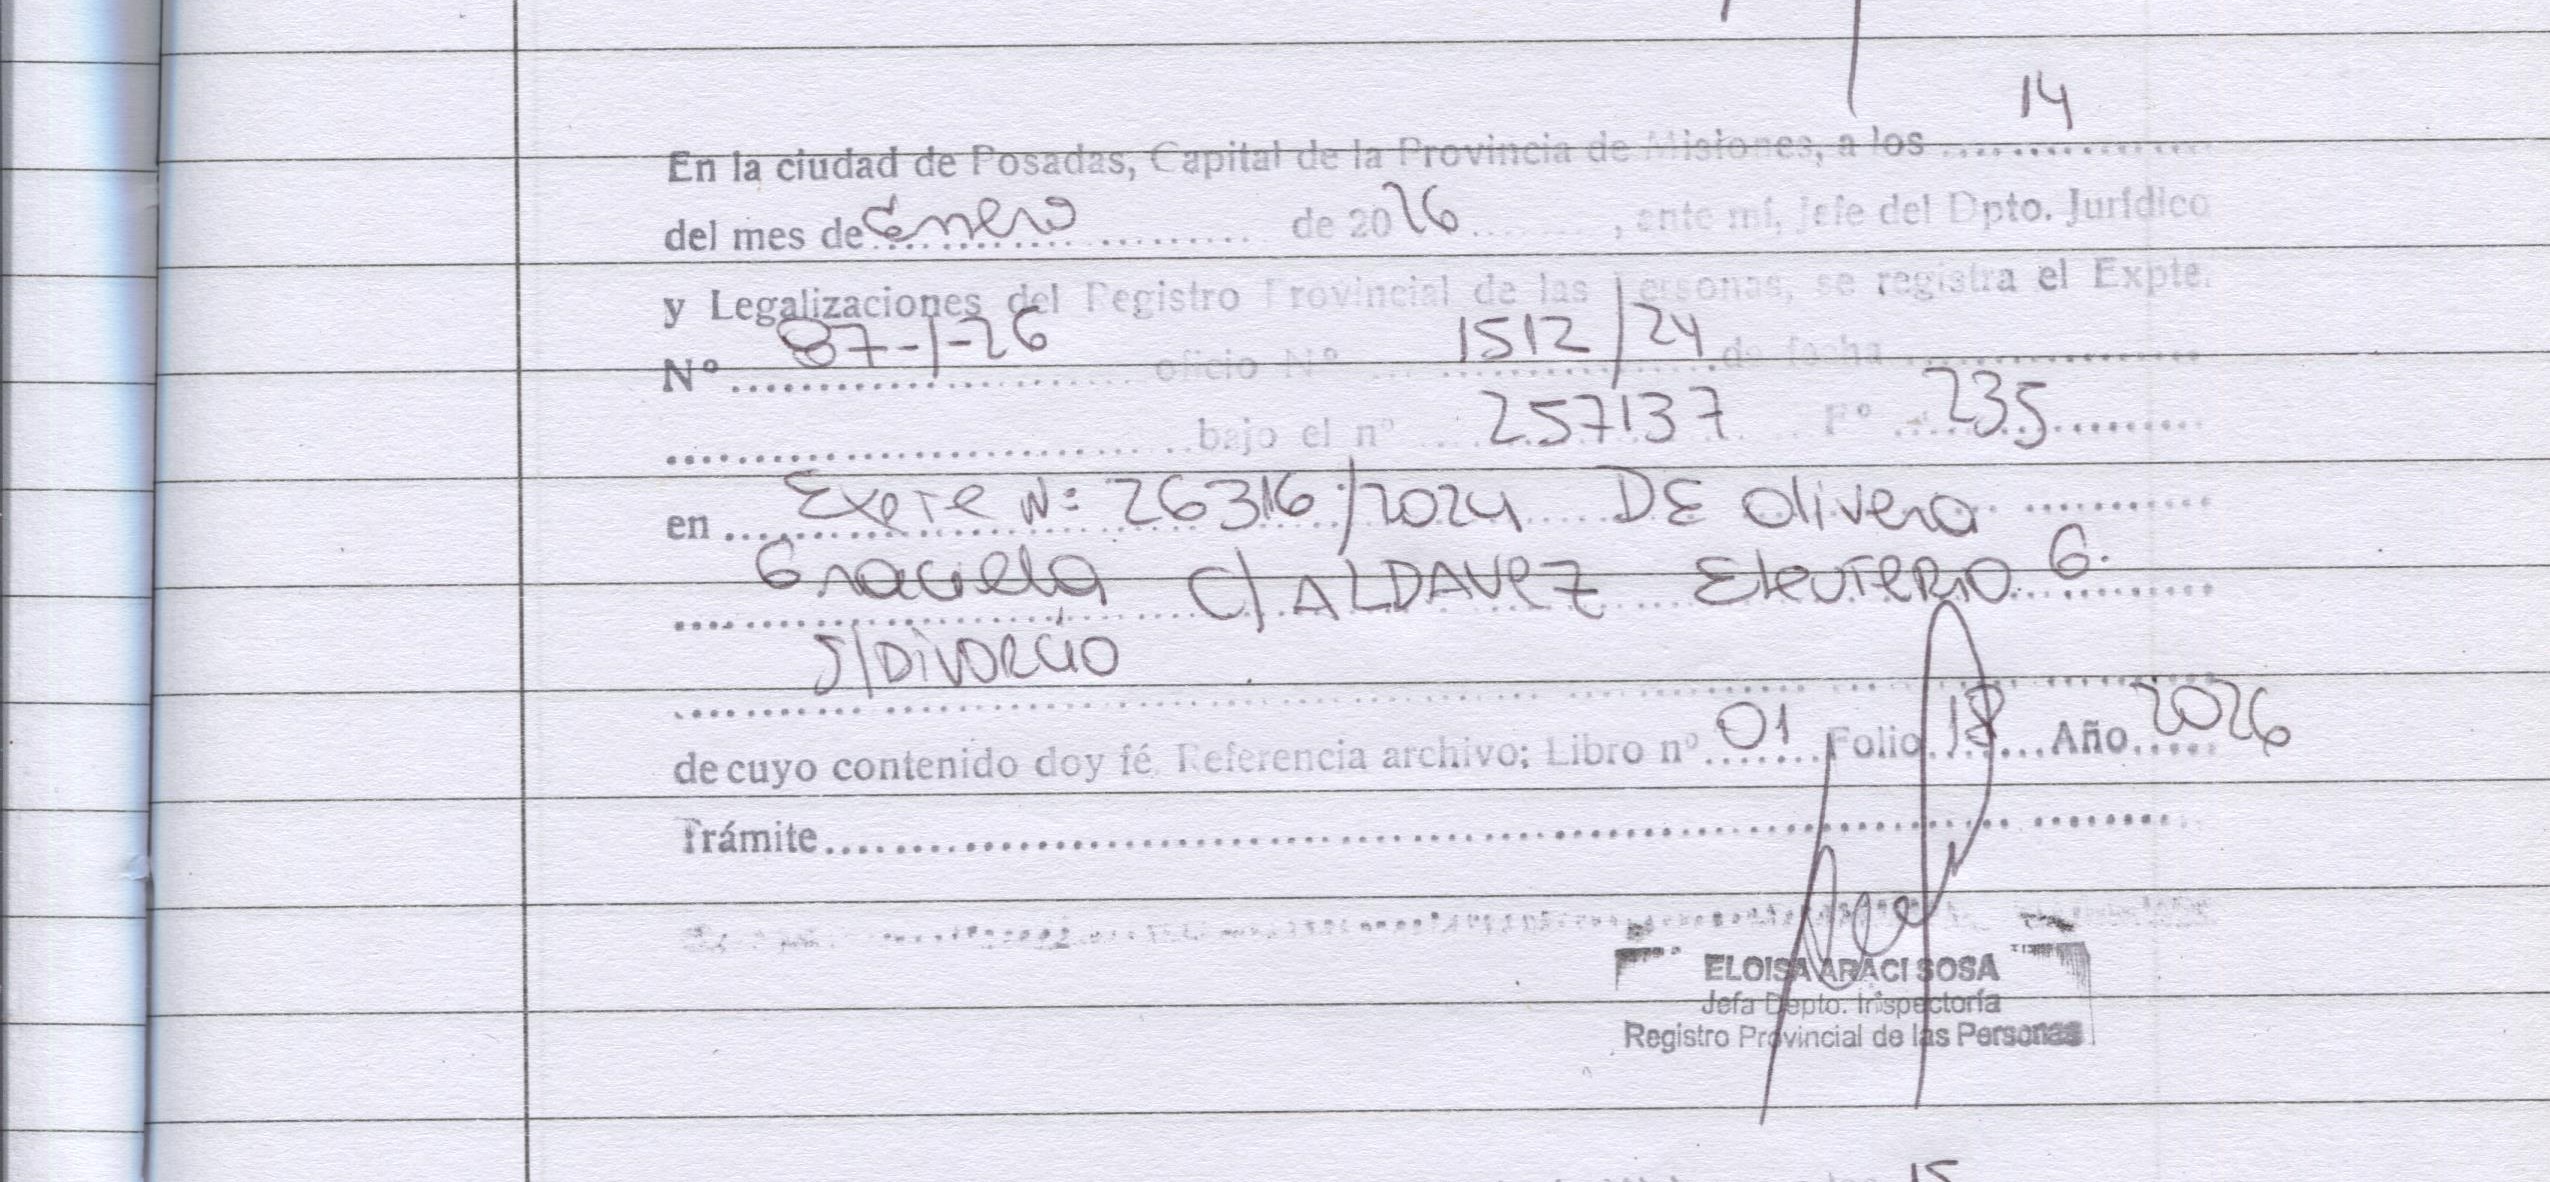 14
En la ciudad de Posadas, Capital de la Provincia de Misiones, a los ..................
del mes de Enero .......... de 2026 ........, ante mí, Jefe del Dpto. Jurídico
y Legalizaciones del Registro Provincial de las Personas, se registra el Expte.
Nº 87-1-26 oficio Nº 1512/24 de fecha ..................
.............................. bajo el nº 257137 Fº 235 ..........
en Expte Nº: 26316/2024 DE Olivera
Graciela C/ ALDAVEZ Eleuterio G.
S/DIVORCIO
de cuyo contenido doy fé. Referencia archivo; Libro nº 01 Folio 18 Año 2026
Trámite ..................................................
ELOISA ARACI SOSA
Jefa Depto. Inspectoría
Registro Provincial de las Personas
15